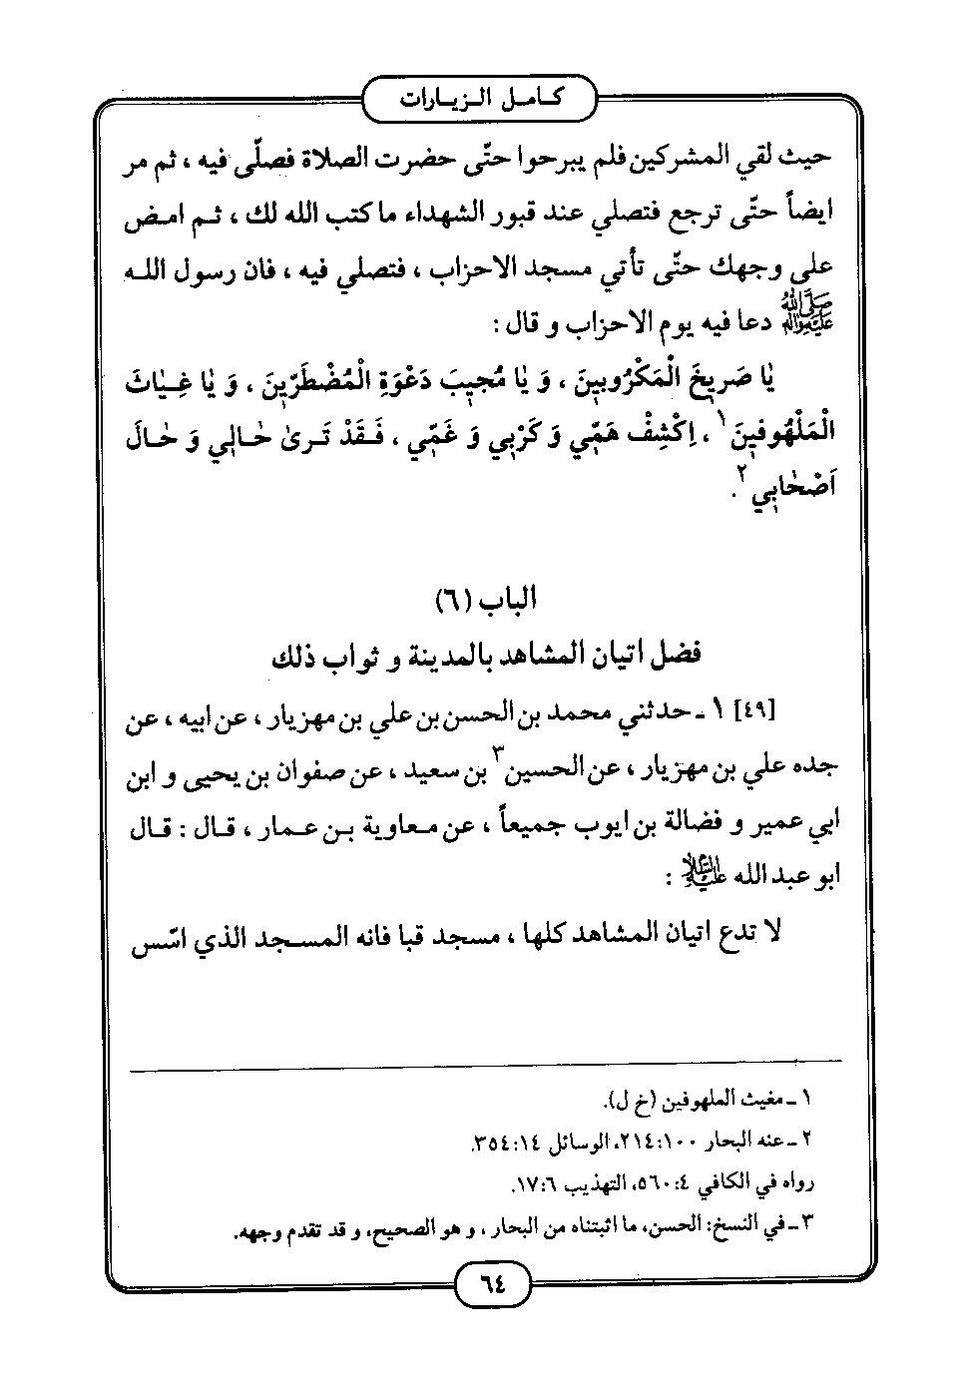 كامل الزيارات
حيث لقي المشركين فلم يبرحوا حتّى حضرت الصلاة فصلّى فيه ، ثم مر
ايضاً حتّى ترجع فتصلي عند قبور الشهداء ما كتب الله لك ، ثم امض
على وجهك حتّى تأتي مسجد الاحزاب ، فتصلي فيه ، فان رسول الله
صَلَّى اللهُ عَلَيْهِ وَآلِهِ دعا فيه يوم الاحزاب و قال :
يٰا صَرِيخَ الْمَكْرُوبينَ ، وَ يٰا مُجيبَ دَعْوَةِ الْمُضْطَرّينَ ، وَ يٰا غِيٰاثَ
الْمَلْهُوفينَ ١ ، اِكْشِفْ هَمّي وَ كَرْبي وَ غَمّي ، فَقَدْ تَرىٰ حٰالي وَ حٰالَ
اَصْحٰابي ٢.
الباب (٦)
فضل اتيان المشاهد بالمدينة و ثواب ذلك
[٤٩] ١ ـ حدثني محمد بن الحسن بن علي بن مهزيار ، عن ابيه ، عن
جده علي بن مهزيار ، عن الحسين ٣ بن سعيد ، عن صفوان بن يحيى و ابن
ابي عمير و فضالة بن ايوب جميعاً ، عن معاوية بن عمار ، قال : قال
ابو عبد الله عليه السلام :
لا تدع اتيان المشاهد كلها ، مسجد قبا فانه المسجد الذي اسّس
١ ـ مغيث الملهوفين (خ ل).
٢ ـ عنه البحار ١٠٠:٢١٤، الوسائل ١٤:٣٥٤.
رواه في الكافي ٤:٥٦٠، التهذيب ٦:١٧.
٣ ـ في النسخ: الحسن، ما اثبتناه من البحار ، و هو الصحيح، و قد تقدم وجهه.
٦٤